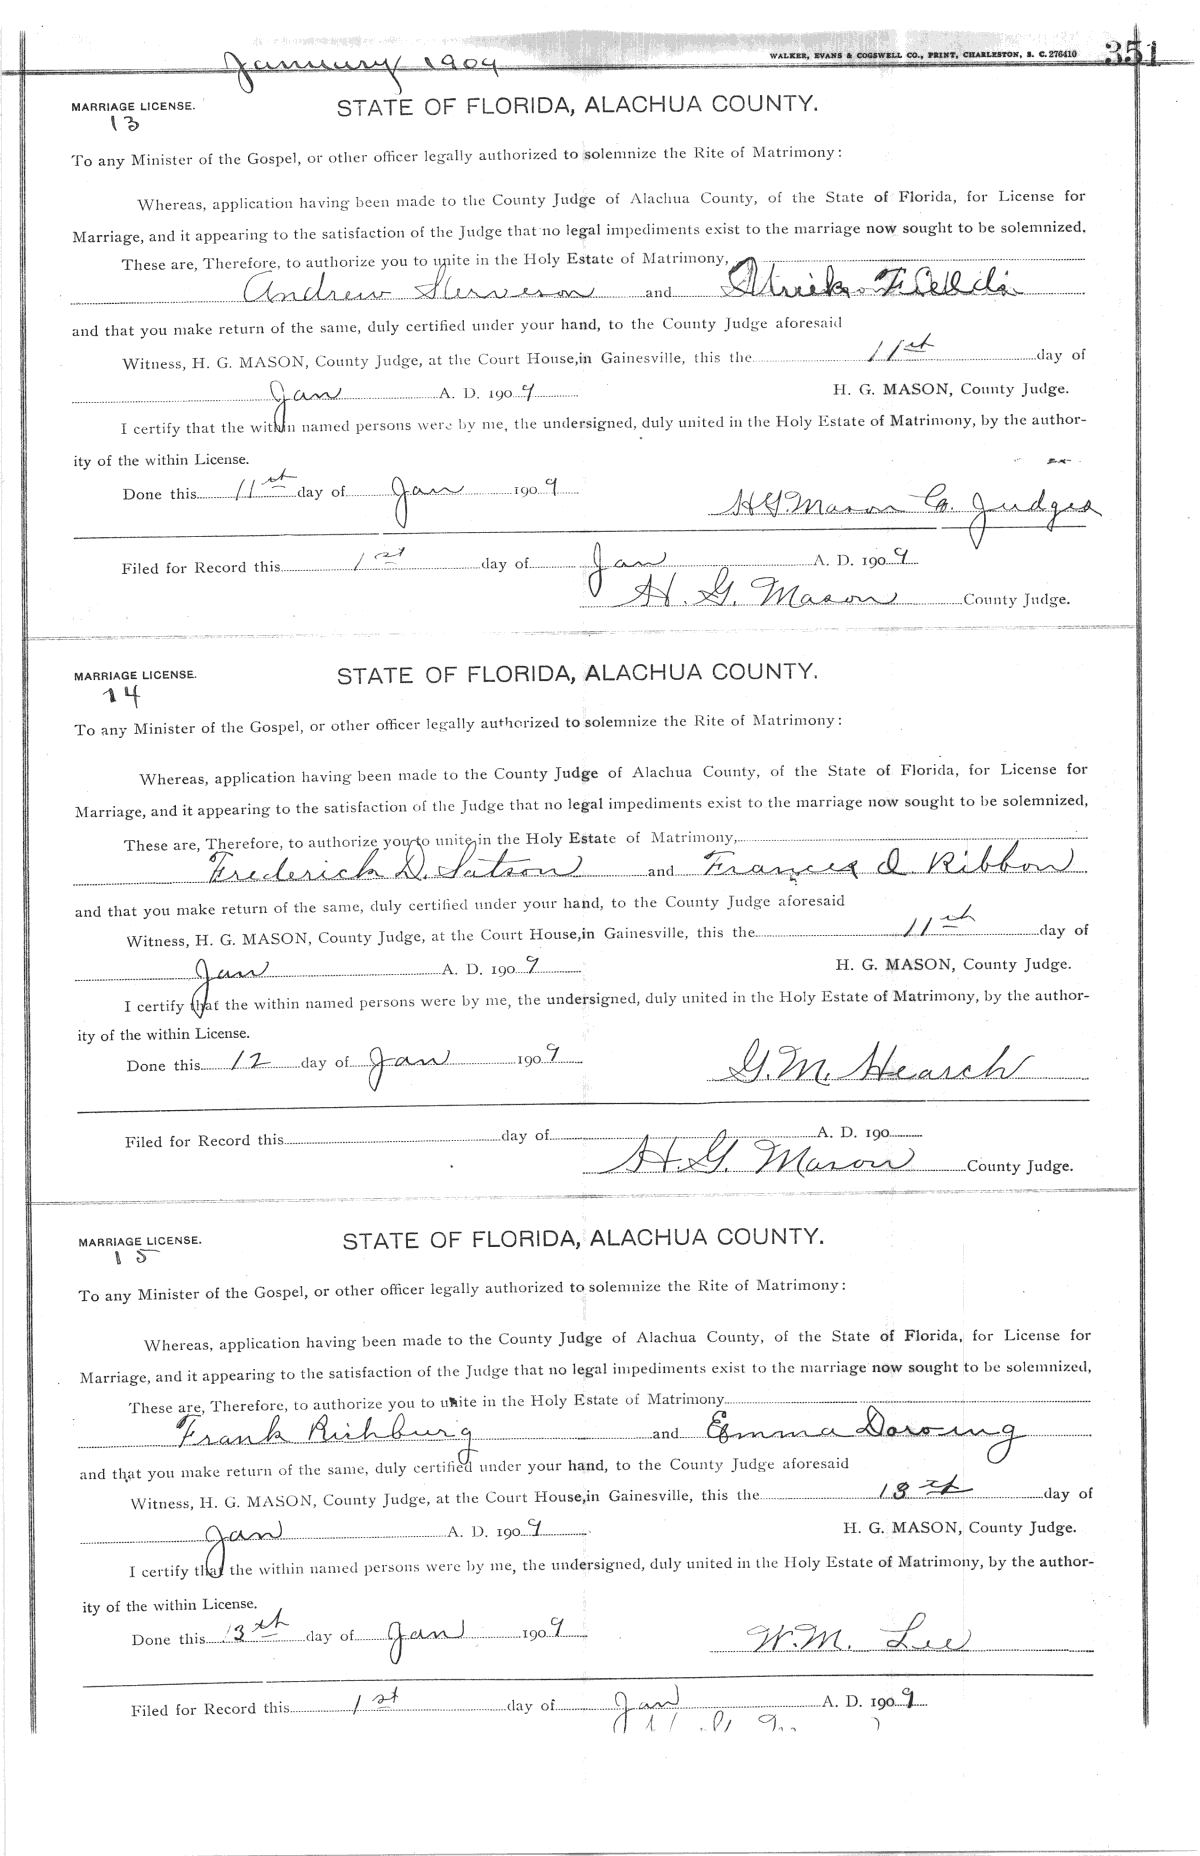 January 1909
WALKER, EVANS & COGSWELL CO., PRINT, CHARLESTON, S. C. 276410 351
MARRIAGE LICENSE. STATE OF FLORIDA, ALACHUA COUNTY.
13
To any Minister of the Gospel, or other officer legally authorized to solemnize the Rite of Matrimony:
Whereas, application having been made to the County Judge of Alachua County, of the State of Florida, for License for
Marriage, and it appearing to the satisfaction of the Judge that no legal impediments exist to the marriage now sought to be solemnized.
These are, Therefore, to authorize you to unite in the Holy Estate of Matrimony,
Andrew and
and that you make return of the same, duly certified under your hand, to the County Judge aforesaid
Witness, H. G. MASON, County Judge, at the Court House, in Gainesville, this the 11st day of
Jan A. D. 1909 H. G. MASON, County Judge.
I certify that the within named persons were by me, the undersigned, duly united in the Holy Estate of Matrimony, by the author-
ity of the within License.
Done this 11st day of Jan 1909 H G. Mason Co. Judges
Filed for Record this 1st day of Jan A. D. 1909
H. G. Mason County Judge.
MARRIAGE LICENSE. STATE OF FLORIDA, ALACHUA COUNTY.
14
To any Minister of the Gospel, or other officer legally authorized to solemnize the Rite of Matrimony:
Whereas, application having been made to the County Judge of Alachua County, of the State of Florida, for License for
Marriage, and it appearing to the satisfaction of the Judge that no legal impediments exist to the marriage now sought to be solemnized,
These are, Therefore, to authorize you to unite in the Holy Estate of Matrimony,
Frederick D. Satson and Frances O. Ribbon
and that you make return of the same, duly certified under your hand, to the County Judge aforesaid
Witness, H. G. MASON, County Judge, at the Court House, in Gainesville, this the 11th day of
Jan A. D. 1909 H. G. MASON, County Judge.
I certify that the within named persons were by me, the undersigned, duly united in the Holy Estate of Matrimony, by the author-
ity of the within License.
Done this 12 day of Jan 1909 G. M. Hearch
Filed for Record this day of A. D. 190
H. G. Mason County Judge.
MARRIAGE LICENSE. STATE OF FLORIDA, ALACHUA COUNTY.
15
To any Minister of the Gospel, or other officer legally authorized to solemnize the Rite of Matrimony:
Whereas, application having been made to the County Judge of Alachua County, of the State of Florida, for License for
Marriage, and it appearing to the satisfaction of the Judge that no legal impediments exist to the marriage now sought to be solemnized,
These are, Therefore, to authorize you to unite in the Holy Estate of Matrimony
Frank Richburg and Emma
and that you make return of the same, duly certified under your hand, to the County Judge aforesaid
Witness, H. G. MASON, County Judge, at the Court House, in Gainesville, this the 13th day of
Jan A. D. 1909 H. G. MASON, County Judge.
I certify that the within named persons were by me, the undersigned, duly united in the Holy Estate of Matrimony, by the author-
ity of the within License.
Done this 13th day of Jan 1909 W. M. Lee
Filed for Record this 1st day of Jan A. D. 1909